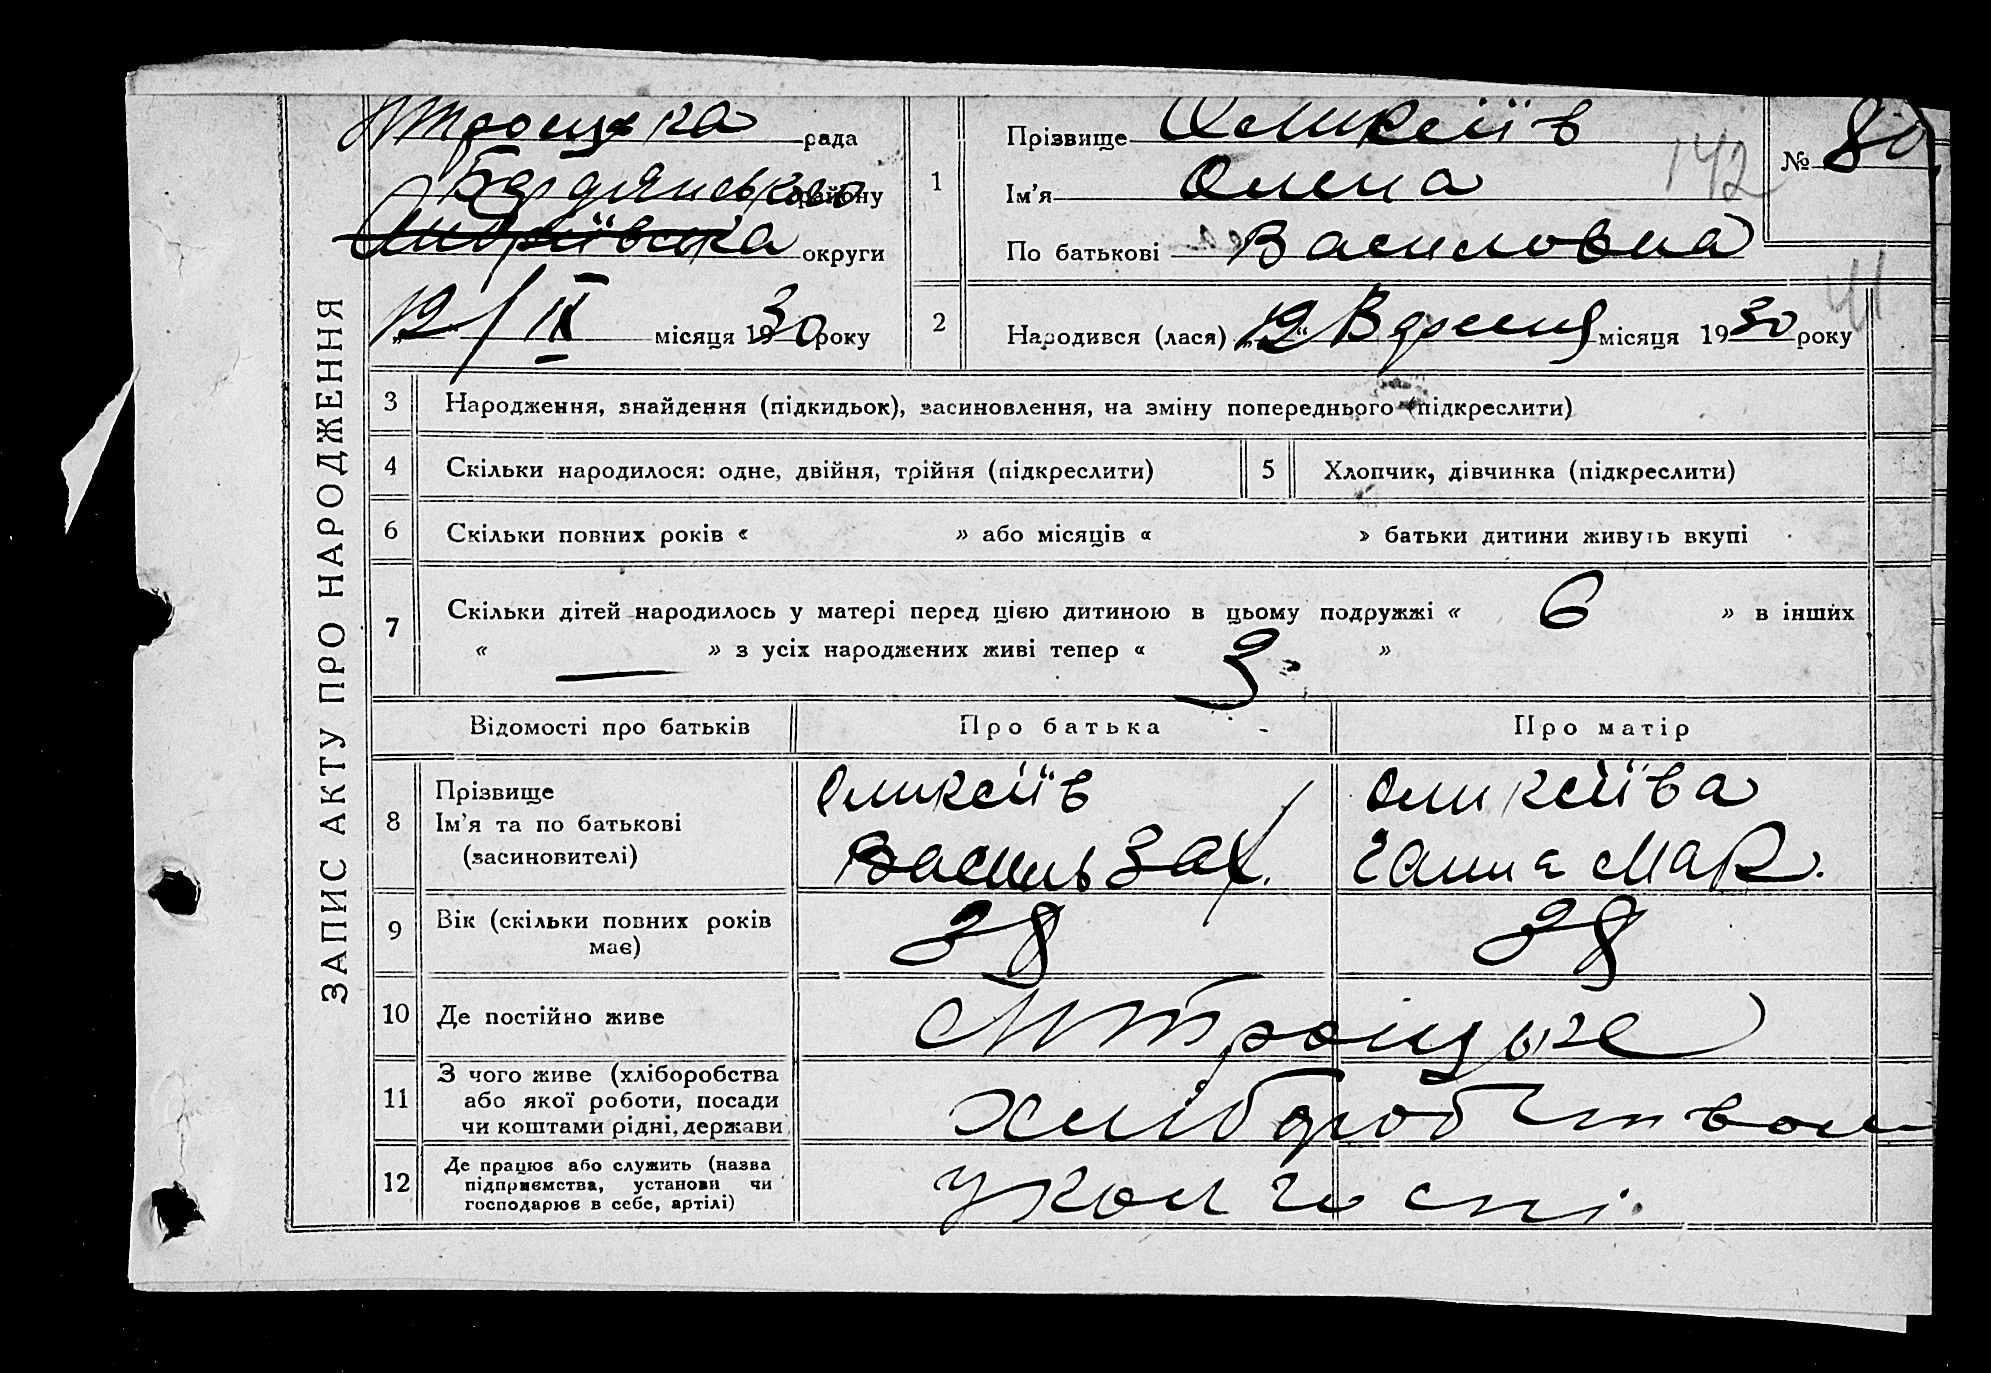 ЗАПИС АКТУ ПРО НАРОДЖЕННЯ
Троицька рада
Бердянського району
округи
12/IX місяця 1930 року
1
Прізвище Оликсіїв
Ім'я Олена
По батькові Василовна
142
№ 80
41
2
Народився (лася) „12“ Вересня місяця 1930 року
3 Народження, знайдення (підкидьок), засиновлення, на зміну попереднього (підкреслити)
4 Скільки народилося: одне, двійня, трійня (підкреслити)
5 Хлопчик, дівчинка (підкреслити)
6 Скільки повних років « » або місяців « » батьки дитини живуть вкупі
7 Скільки дітей народилось у матері перед цією дитиною в цьому подружжі « 6 » в інших
« — » з усіх народжених живі тепер « 3 »
Відомості про батьків
Про батька
Про матір
8 Прізвище
Ім'я та по батькові
(засиновителі)
Оликсіїв
Василь Зах.
Оликсіїва
Ганна Мар.
9 Вік (скільки повних років
має)
38
38
10 Де постійно живе
Троицьке
11 З чого живе (хліборобства
або якої роботи, посади
чи коштами рідні, держави
хліборобством
12 Де працює або служить (назва
підприємства, установи чи
господарює в себе, артілі)
у кол